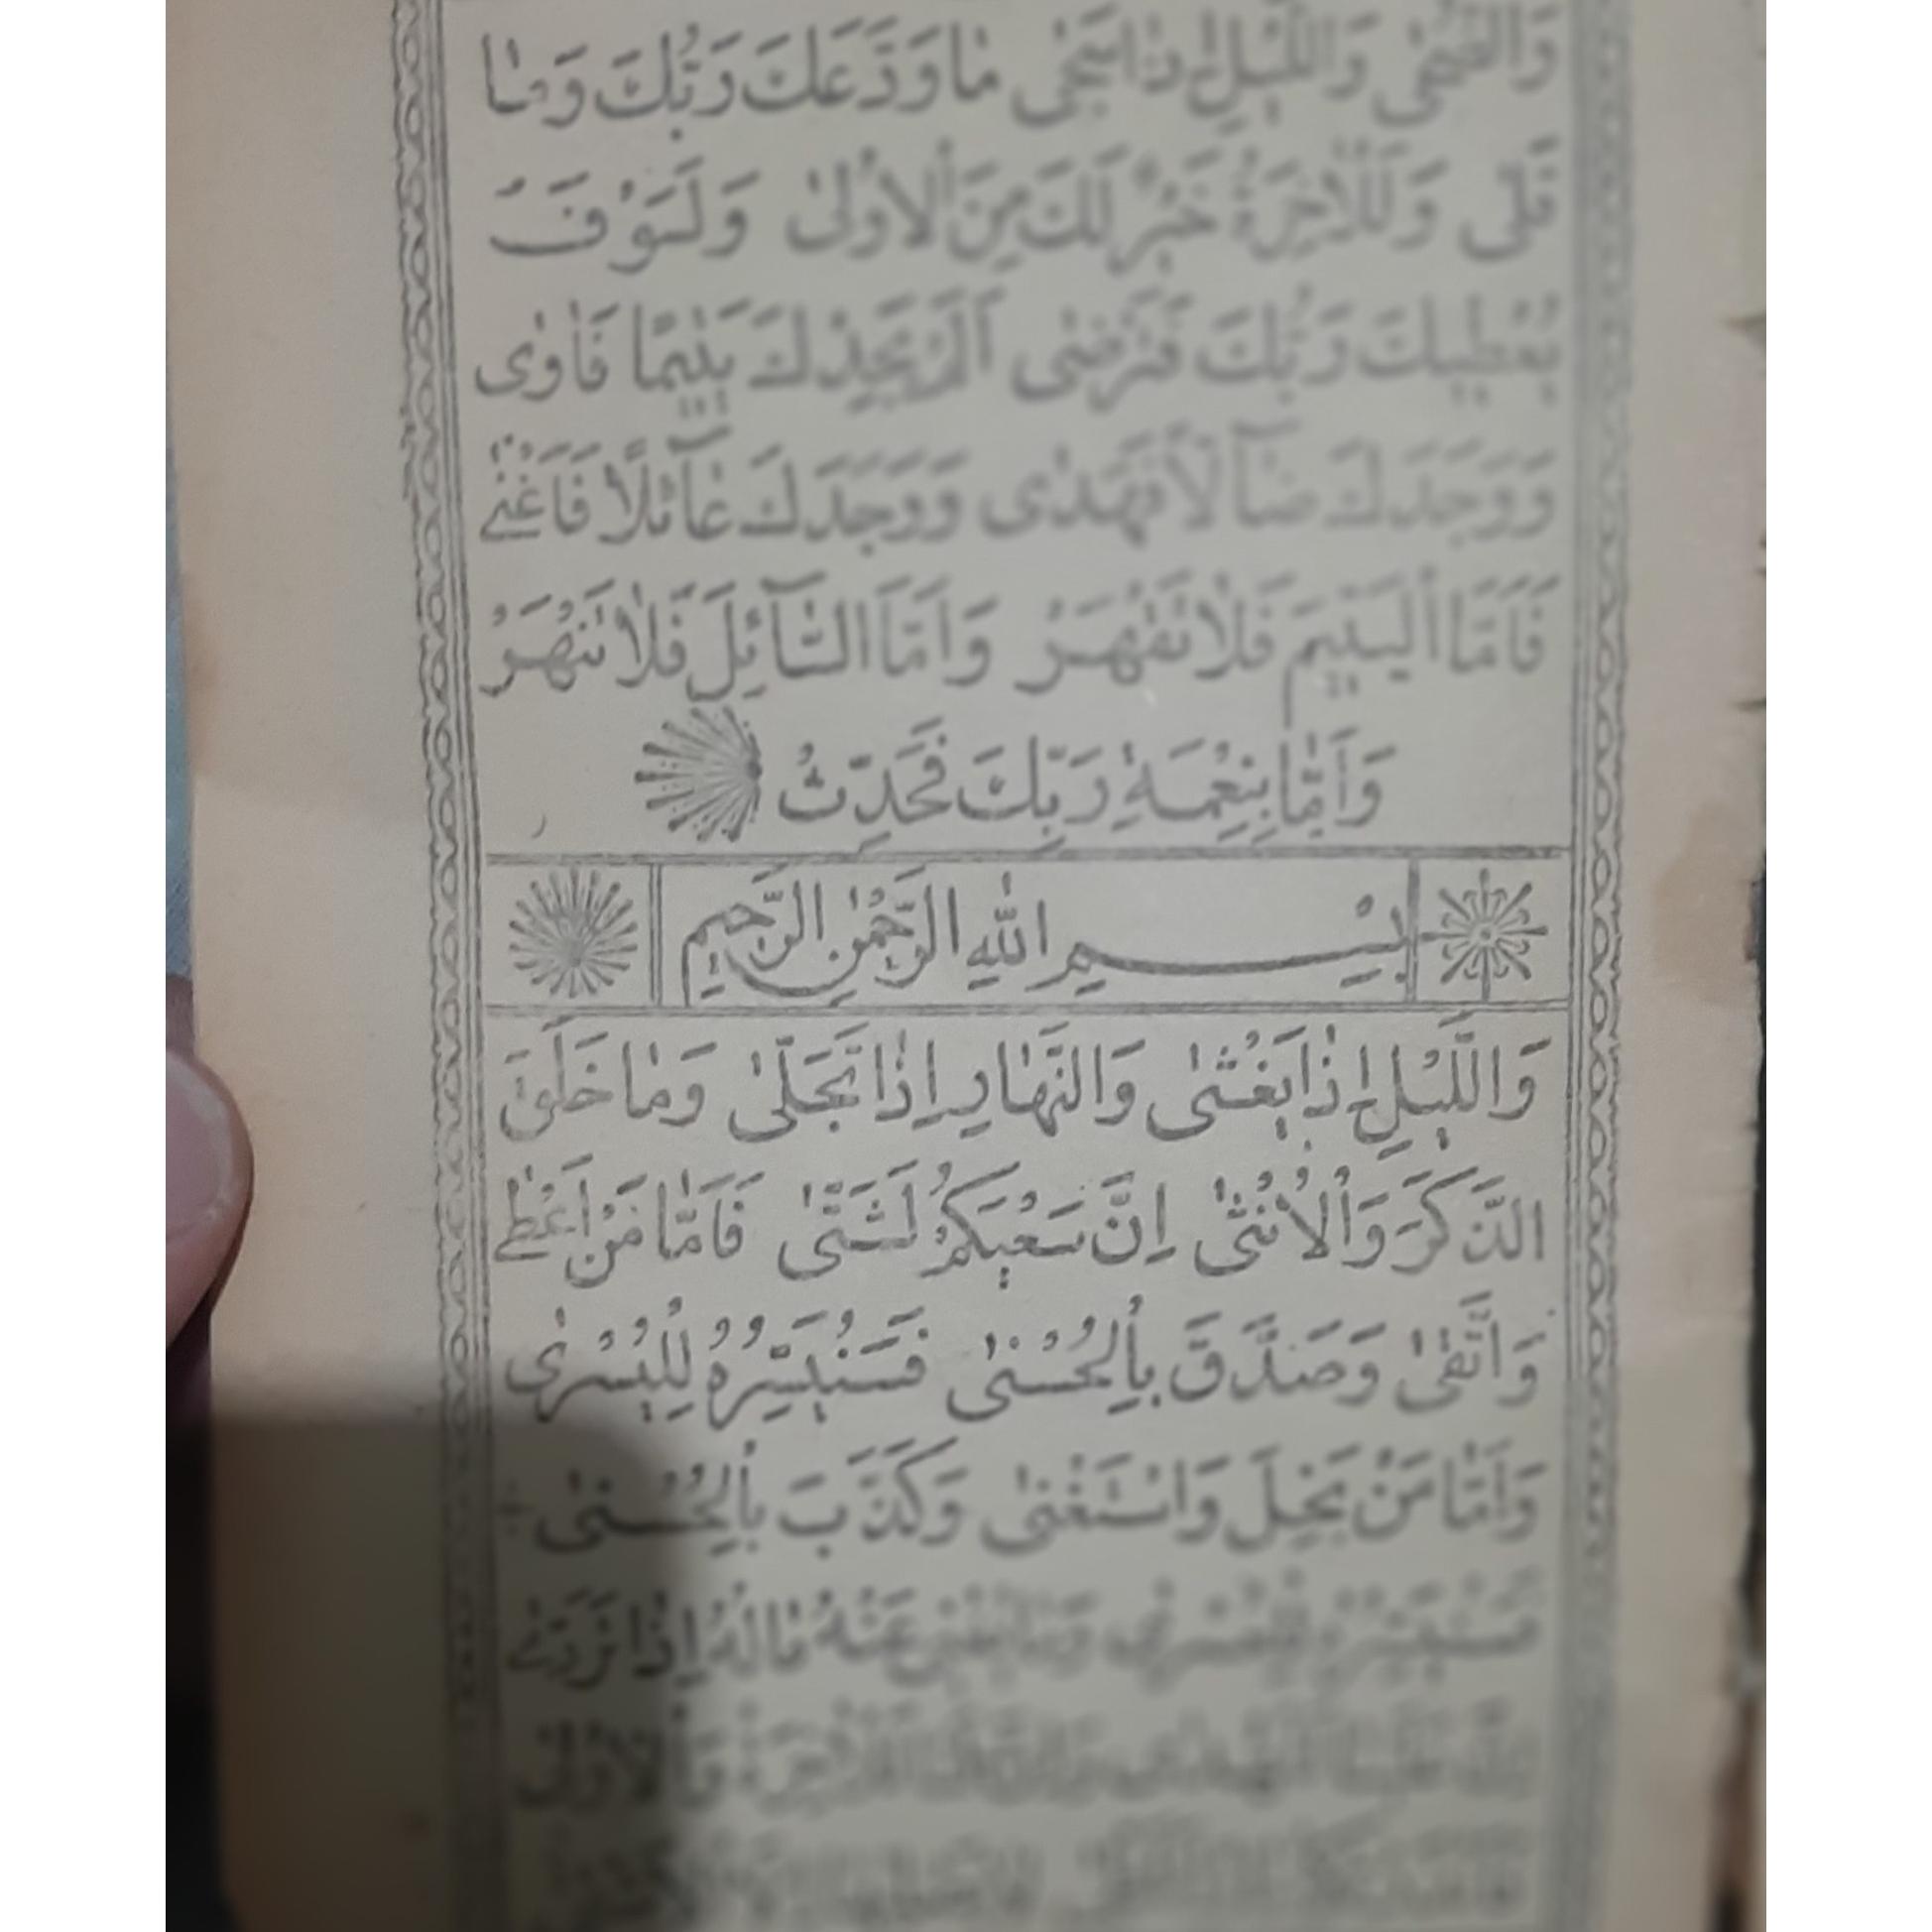 وَالضُّحٰى وَاللَّيْلِ اِذٰا سَجٰى مٰا وَدَّعَكَ رَبُّكَ وَمٰا
قَلٰى وَلَلْاٰخِرَةُ خَيْرٌ لَكَ مِنَ الْاُولٰى وَلَسَوْفَ
يُعْطيكَ رَبُّكَ فَتَرْضٰى اَلَمْ يَجِدْكَ يَتيمًا فَاٰوٰى
وَوَجَدَكَ ضٰآلًّا فَهَدٰى وَوَجَدَكَ عٰآئِلًا فَاَغْنٰى
فَاَمَّا الْيَتيمَ فَلٰا تَقْهَرْ وَاَمَّا السّٰٓائِلَ فَلٰا تَنْهَرْ
وَاَمّٰا بِنِعْمَةِ رَبِّكَ فَحَدِّثْ
بِسْمِ اللّٰهِ الرَّحْمٰنِ الرَّحيمِ
وَاللَّيْلِ اِذٰا يَغْشٰى وَالنَّهٰارِ اِذٰا تَجَلّٰى وَمٰا خَلَقَ
الذَّكَرَ وَالْاُنْثٰى اِنَّ سَعْيَكُمْ لَشَتّٰى فَاَمّٰا مَنْ اَعْطٰى
وَاتَّقٰى وَصَدَّقَ بِالْحُسْنٰى فَسَنُيَسِّرُهُ لِلْيُسْرٰى
وَاَمّٰا مَنْ بَخِلَ وَاسْتَغْنٰى وَكَذَّبَ بِالْحُسْنٰى
فَسَنُيَسِّرُهُ لِلْعُسْرٰى وَمٰا يُغْني عَنْهُ مٰالُهُ اِذٰا تَرَدّٰى
وَالْاُولٰى